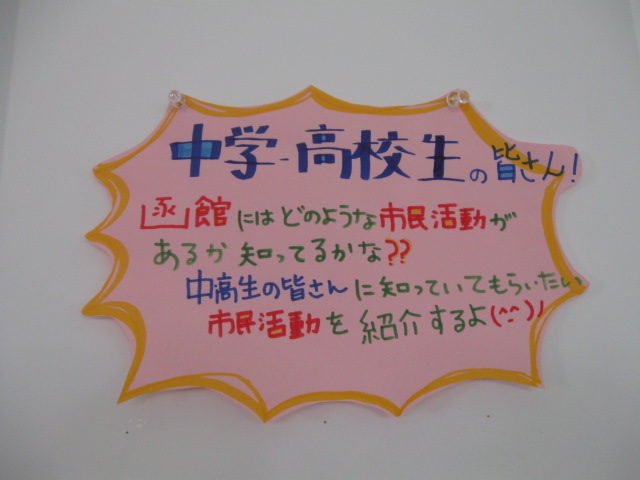 中学・高校生の皆さん!
函館にはどのような市民活動が
あるか知ってるかな??
中高生の皆さんに知っていてもらいたい
市民活動を紹介するよ(^^)ﾉ